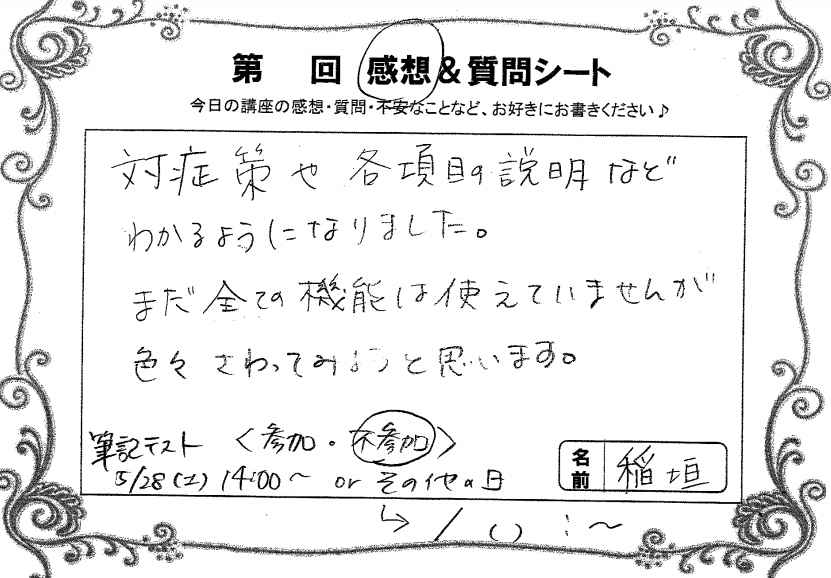 第　回 感想&質問シート
今日の講座の感想・質問・不安なことなど、お好きにお書きください♪
対症策や各項目の説明など
わかるようになりました。
まだ全ての機能は使えていませんが
色々さわってみようと思います。
筆記テスト <参加・不参加>
5/28(土) 14:00～ or その他の日
名前 稲垣
↳ / ( ) :～